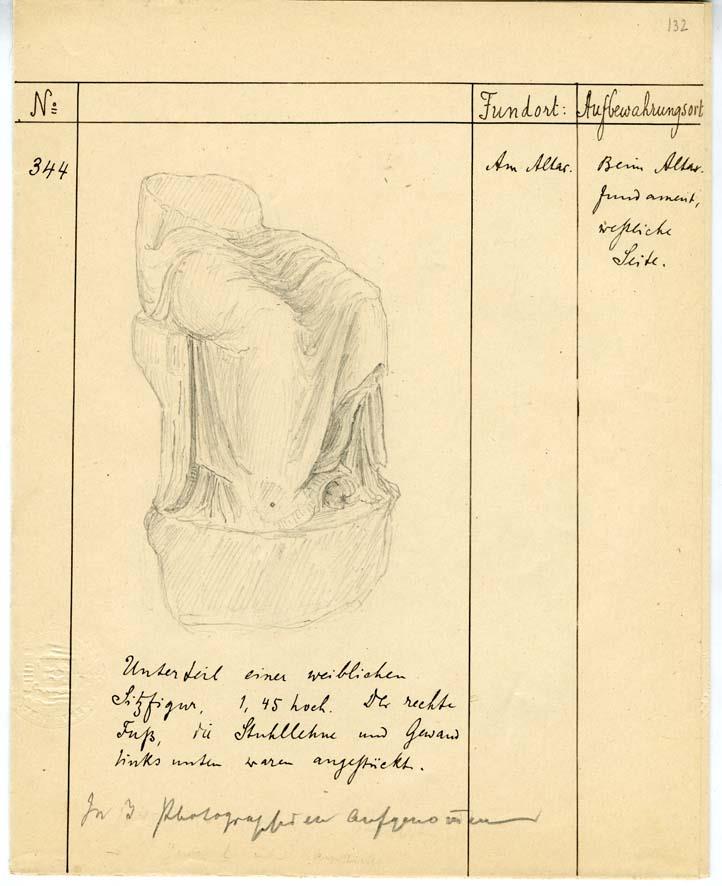 132
No: Fundort: Aufbewahrungsort
344 Am Altar. Beim Altar-
fundament,
westliche
Seite.
Unterteil einer weiblichen
Sitzfigur, 1,45 hoch. Der rechte
Fuß, die Stuhllehne und Gewand
links unten waren angestückt.
In 3 Photographien aufgenom̄en